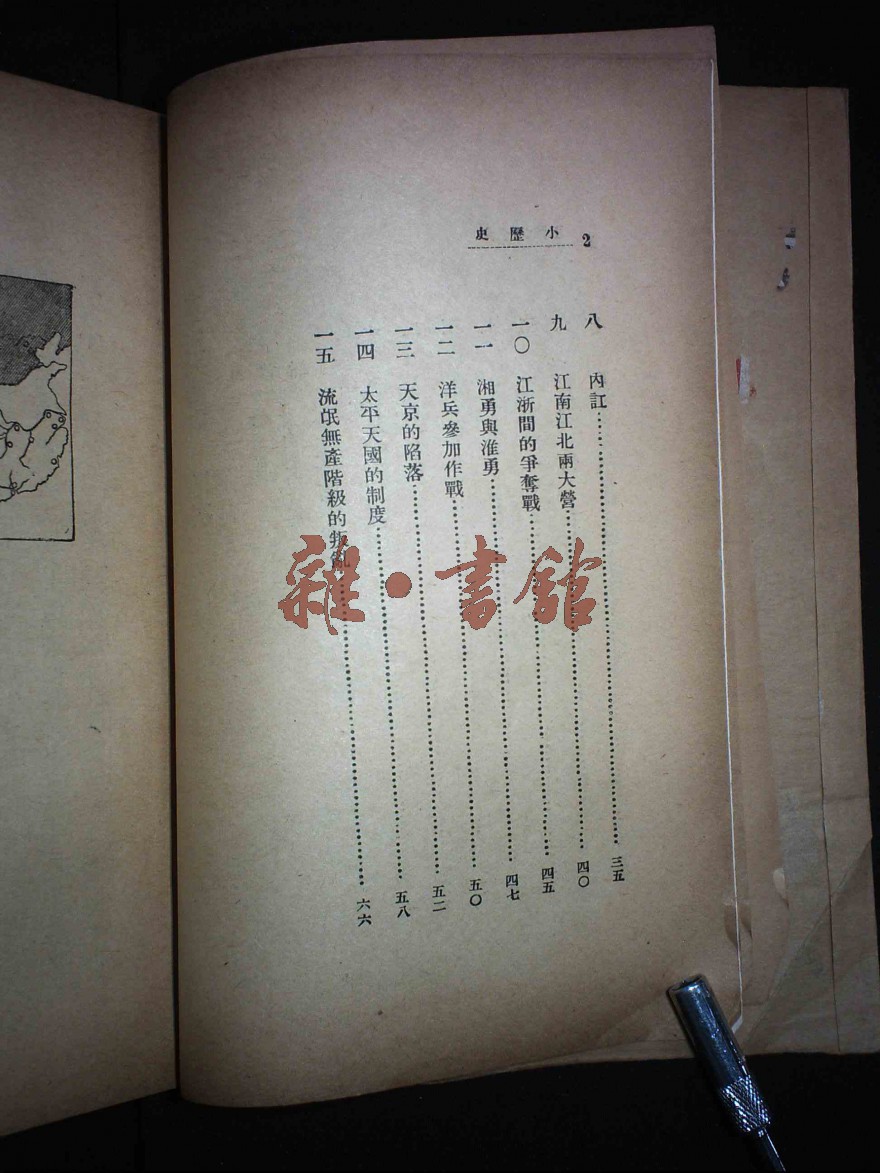 2 小歷史
八 內訌……三五
九 江南江北兩大營……四〇
一〇 江浙間的爭奪戰……四五
一一 湘勇與淮勇……四七
一二 洋兵參加作戰……五〇
一三 天京的陷落……五二
一四 太平天國的制度……五八
一五 流氓無產階級的叛亂……六六
雜·書館